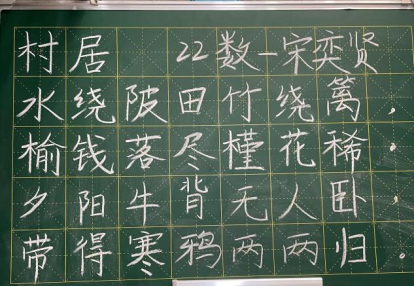 村居 22数-宋奕贤
水绕陂田竹绕篱，
榆钱落尽槿花稀。
夕阳牛背无人卧，
带得寒鸦两两归。